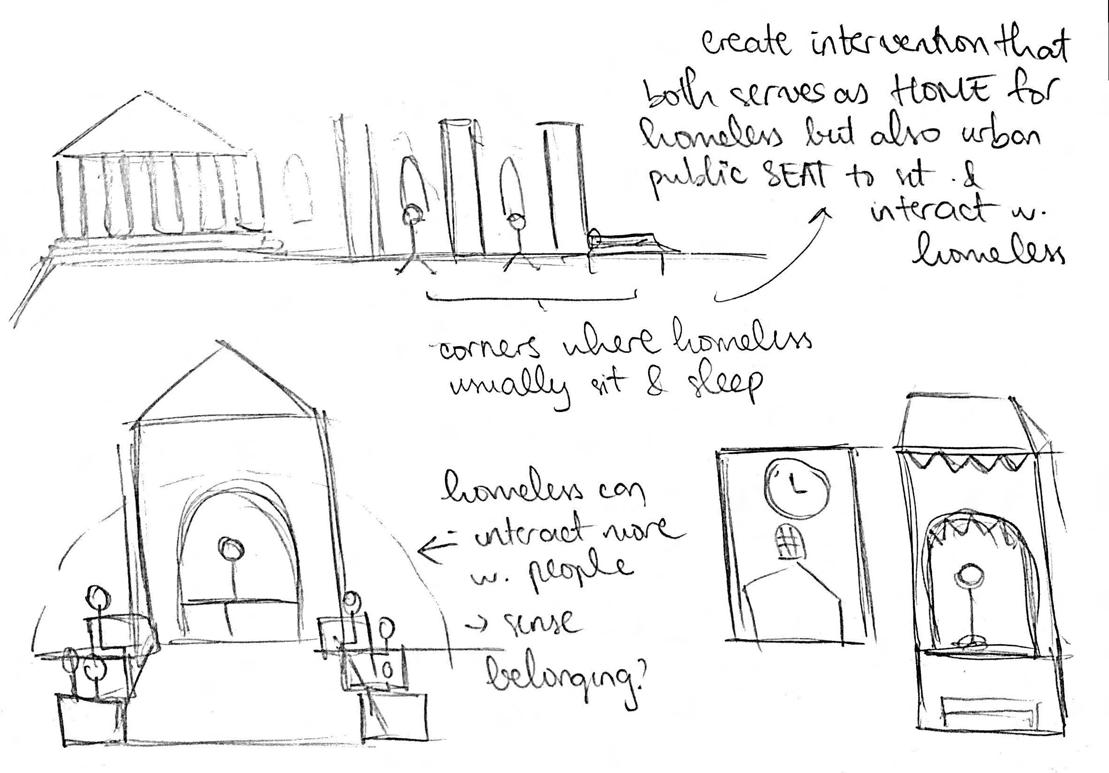 create intervention that
both serves as HOME for
homeless but also urban
public SEAT to sit &
interact w.
homeless
corners where homeless
usually sit & sleep
homeless can
interact more
w. people
→ sense
belonging?